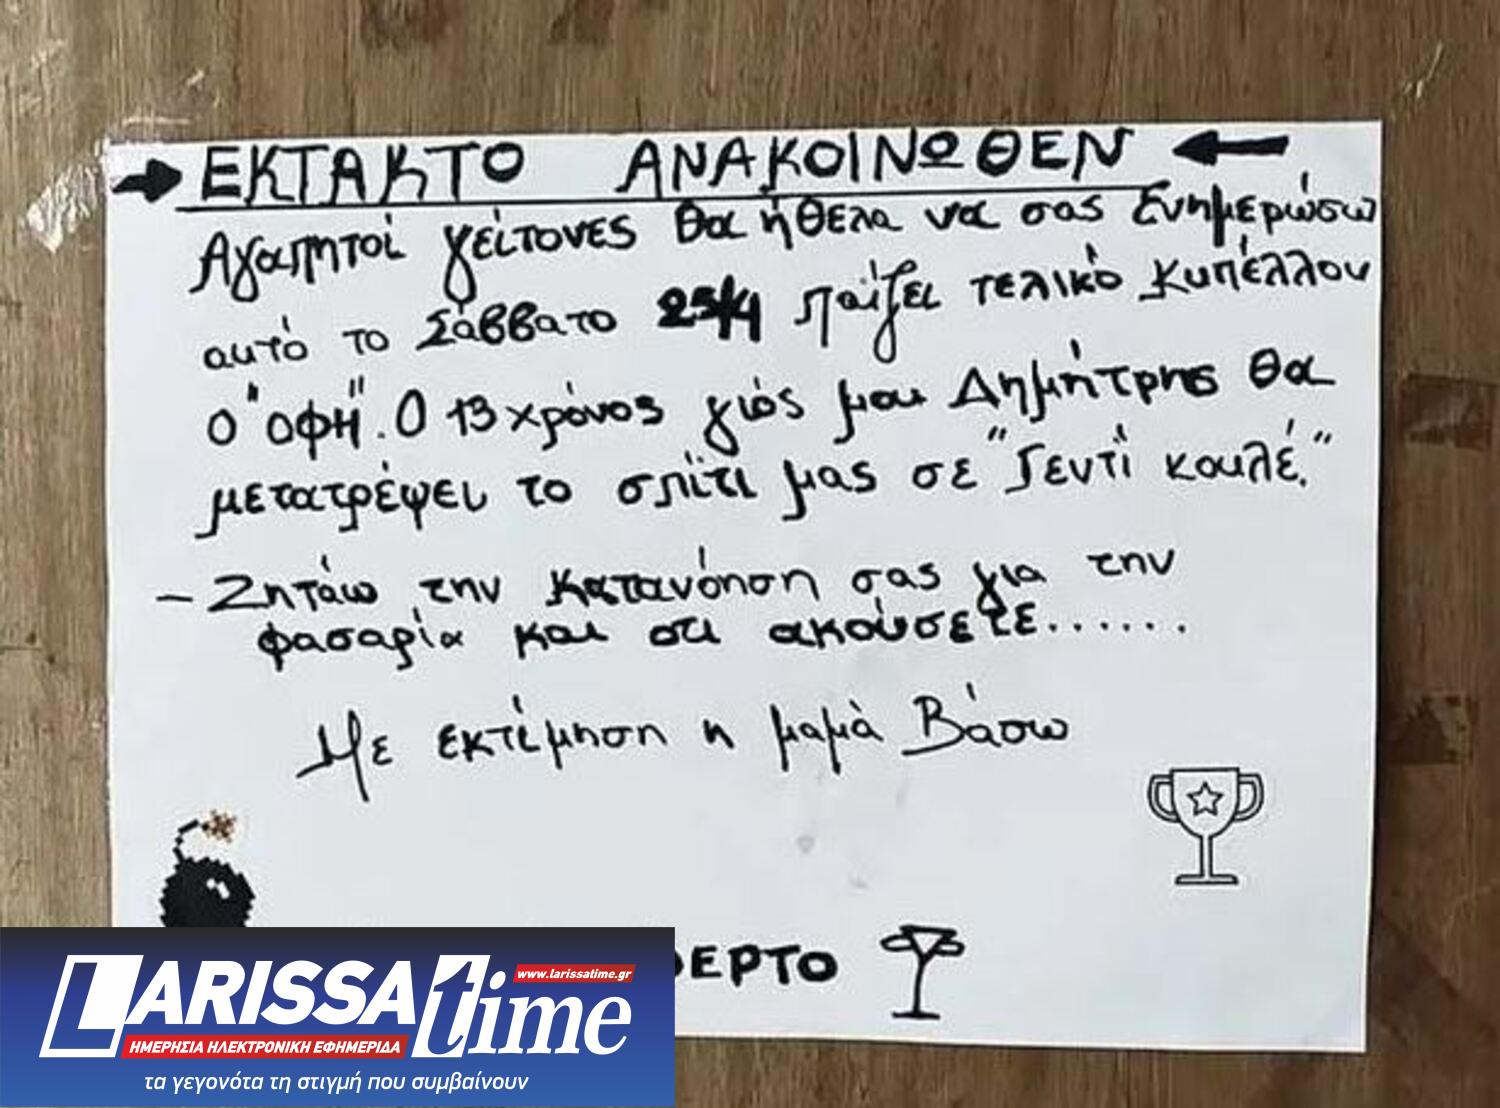 ΕΚΤΑΚΤΟ ΑΝΑΚΟΙΝΩΘΕΝ
Αγαπητοί γείτονες θα ήθελα να σας Ενημερώσω
αυτό το Σάββατο 25/4 παίζει τελικό Κυπέλλου
ο "οφη". Ο 13χρόνος γιός μου Δημήτρης θα
μετατρέψει το σπίτι μας σε "Γεντί κουλέ."
- Ζητάω την κατανόηση σας για την
φασαρία και οτι ακούσετε......
Με εκτίμηση η μαμά Βάσω
ΦΕΡΤΟ
LARISSAtime
www.larissatime.gr
ΗΜΕΡΗΣΙΑ ΗΛΕΚΤΡΟΝΙΚΗ ΕΦΗΜΕΡΙΔΑ
τα γεγονότα τη στιγμή που συμβαίνουν